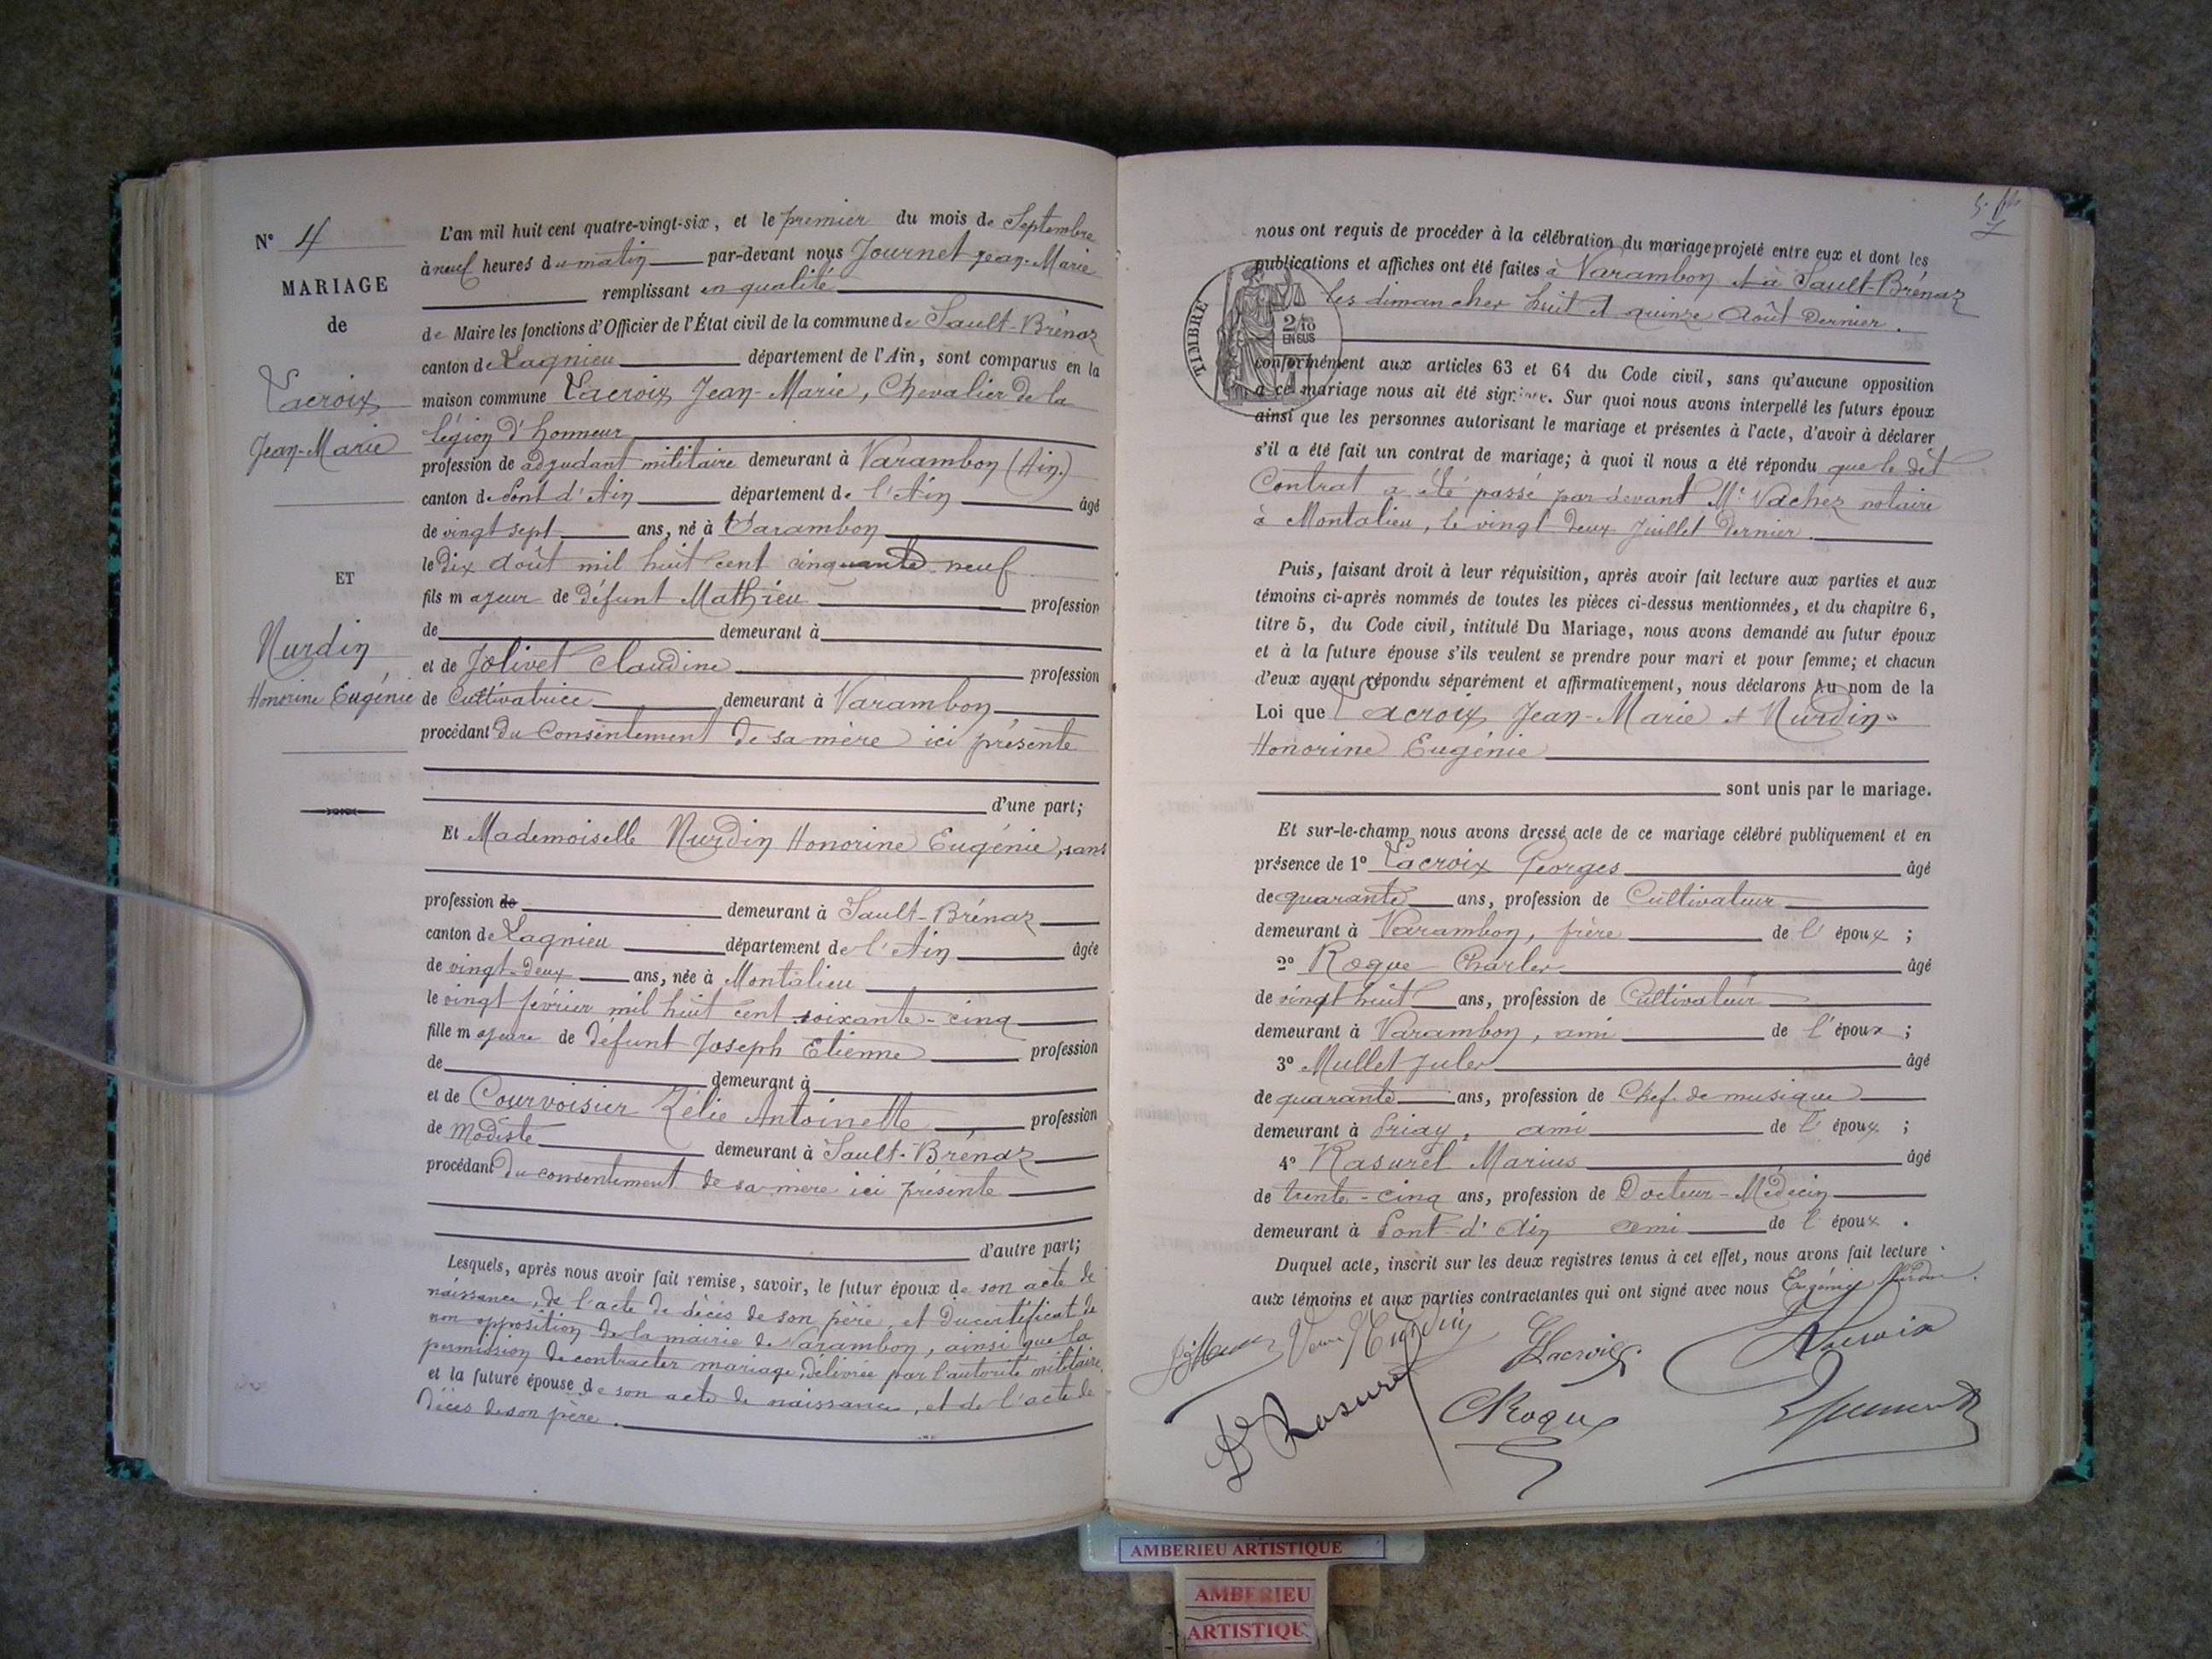 N° 4
MARIAGE
de
Lacroix
Jean-Marie
ET
Nurdin
Honorine Eugénie
L'an mil huit cent quatre-vingt-six, et le premier du mois de Septembre
à neuf heures du matin par-devant nous Journet Jean-Marie
remplissant en qualité
de Maire les fonctions d'Officier de l'État civil de la commune de Sault-Brénaz
canton de Lagnieu département de l'Ain, sont comparus en la
maison commune Lacroix Jean-Marie, Chevalier de la
légion d'honneur
profession de adjudant militaire demeurant à Varambon (Ain.)
canton de Pont d'Ain département de l'Ain âgé
de vingt sept ans, né à Varambon
le dix août mil huit cent cinquante neuf
fils majeur de défunt Mathieu profession
de demeurant à
et de Jolivet Claudine profession
de Cultivatrice demeurant à Varambon
procédant du Consentement de sa mère ici présente
d'une part;
Et Mademoiselle Nurdin Honorine Eugénie, sans
profession de demeurant à Sault-Brénaz
canton de Lagnieu département de l'Ain âgée
de vingt-deux ans, née à Montalieu
le vingt février mil huit cent soixante-cinq
fille majeure de défunt Joseph Etienne profession
de demeurant à
et de Courvoisier Zélie Antoinette profession
de Modiste demeurant à Sault-Brénaz
procédant du consentement de sa mère ici présente
d'autre part;
Lesquels, après nous avoir fait remise, savoir, le futur époux de son acte de
naissance, de l'acte de décès de son père, et du certificat de
non opposition de la mairie de Varambon, ainsi que la
permission de contracter mariage, délivrée par l'autorité militaire,
et la future épouse de son acte de naissance, et de l'acte de
décès de son père.
nous ont requis de procéder à la célébration du mariage projeté entre eux et dont les
publications et affiches ont été faites à Varambon et à Sault-Brénaz
les dimanches huit et quinze Août dernier.
TIMBRE
2/10
EN SUS
conformément aux articles 63 et 64 du Code civil, sans qu'aucune opposition
à ce mariage nous ait été signifiée. Sur quoi nous avons interpellé les futurs époux
ainsi que les personnes autorisant le mariage et présentes à l'acte, d'avoir à déclarer
s'il a été fait un contrat de mariage; à quoi il nous a été répondu que le dit
Contrat a été passé par devant Me Vachez notaire
à Montalieu, le vingt deux Juillet dernier.
Puis, faisant droit à leur réquisition, après avoir fait lecture aux parties et aux
témoins ci-après nommés de toutes les pièces ci-dessus mentionnées, et du chapitre 6,
titre 5, du Code civil, intitulé Du Mariage, nous avons demandé au futur époux
et à la future épouse s'ils veulent se prendre pour mari et pour femme; et chacun
d'eux ayant répondu séparément et affirmativement, nous déclarons Au nom de la
Loi que Lacroix Jean-Marie et Nurdin
Honorine Eugénie
sont unis par le mariage.
Et sur-le-champ nous avons dressé acte de ce mariage célébré publiquement et en
présence de 1° Lacroix Georges âgé
de quarante ans, profession de Cultivateur
demeurant à Varambon, frère de l'époux ;
2° Roque Charles âgé
de vingt huit ans, profession de Cultivateur
demeurant à Varambon, ami de l'époux ;
3° Mullet Jules âgé
de quarante ans, profession de Chef de musique
demeurant à Priay, ami de l'époux ;
4° Rasurel Marius âgé
de trente-cinq ans, profession de Docteur-Médecin
demeurant à Pont-d'Ain ami de l'époux.
Duquel acte, inscrit sur les deux registres tenus à cet effet, nous avons fait lecture
aux témoins et aux parties contractantes qui ont signé avec nous Eugénie Nurdin.
Veuve Nurdin
GLacroix
Lacroix
Dr Rasurel
CRoque
AMBERIEU ARTISTIQUE
AMBERIEU
ARTISTIQUE